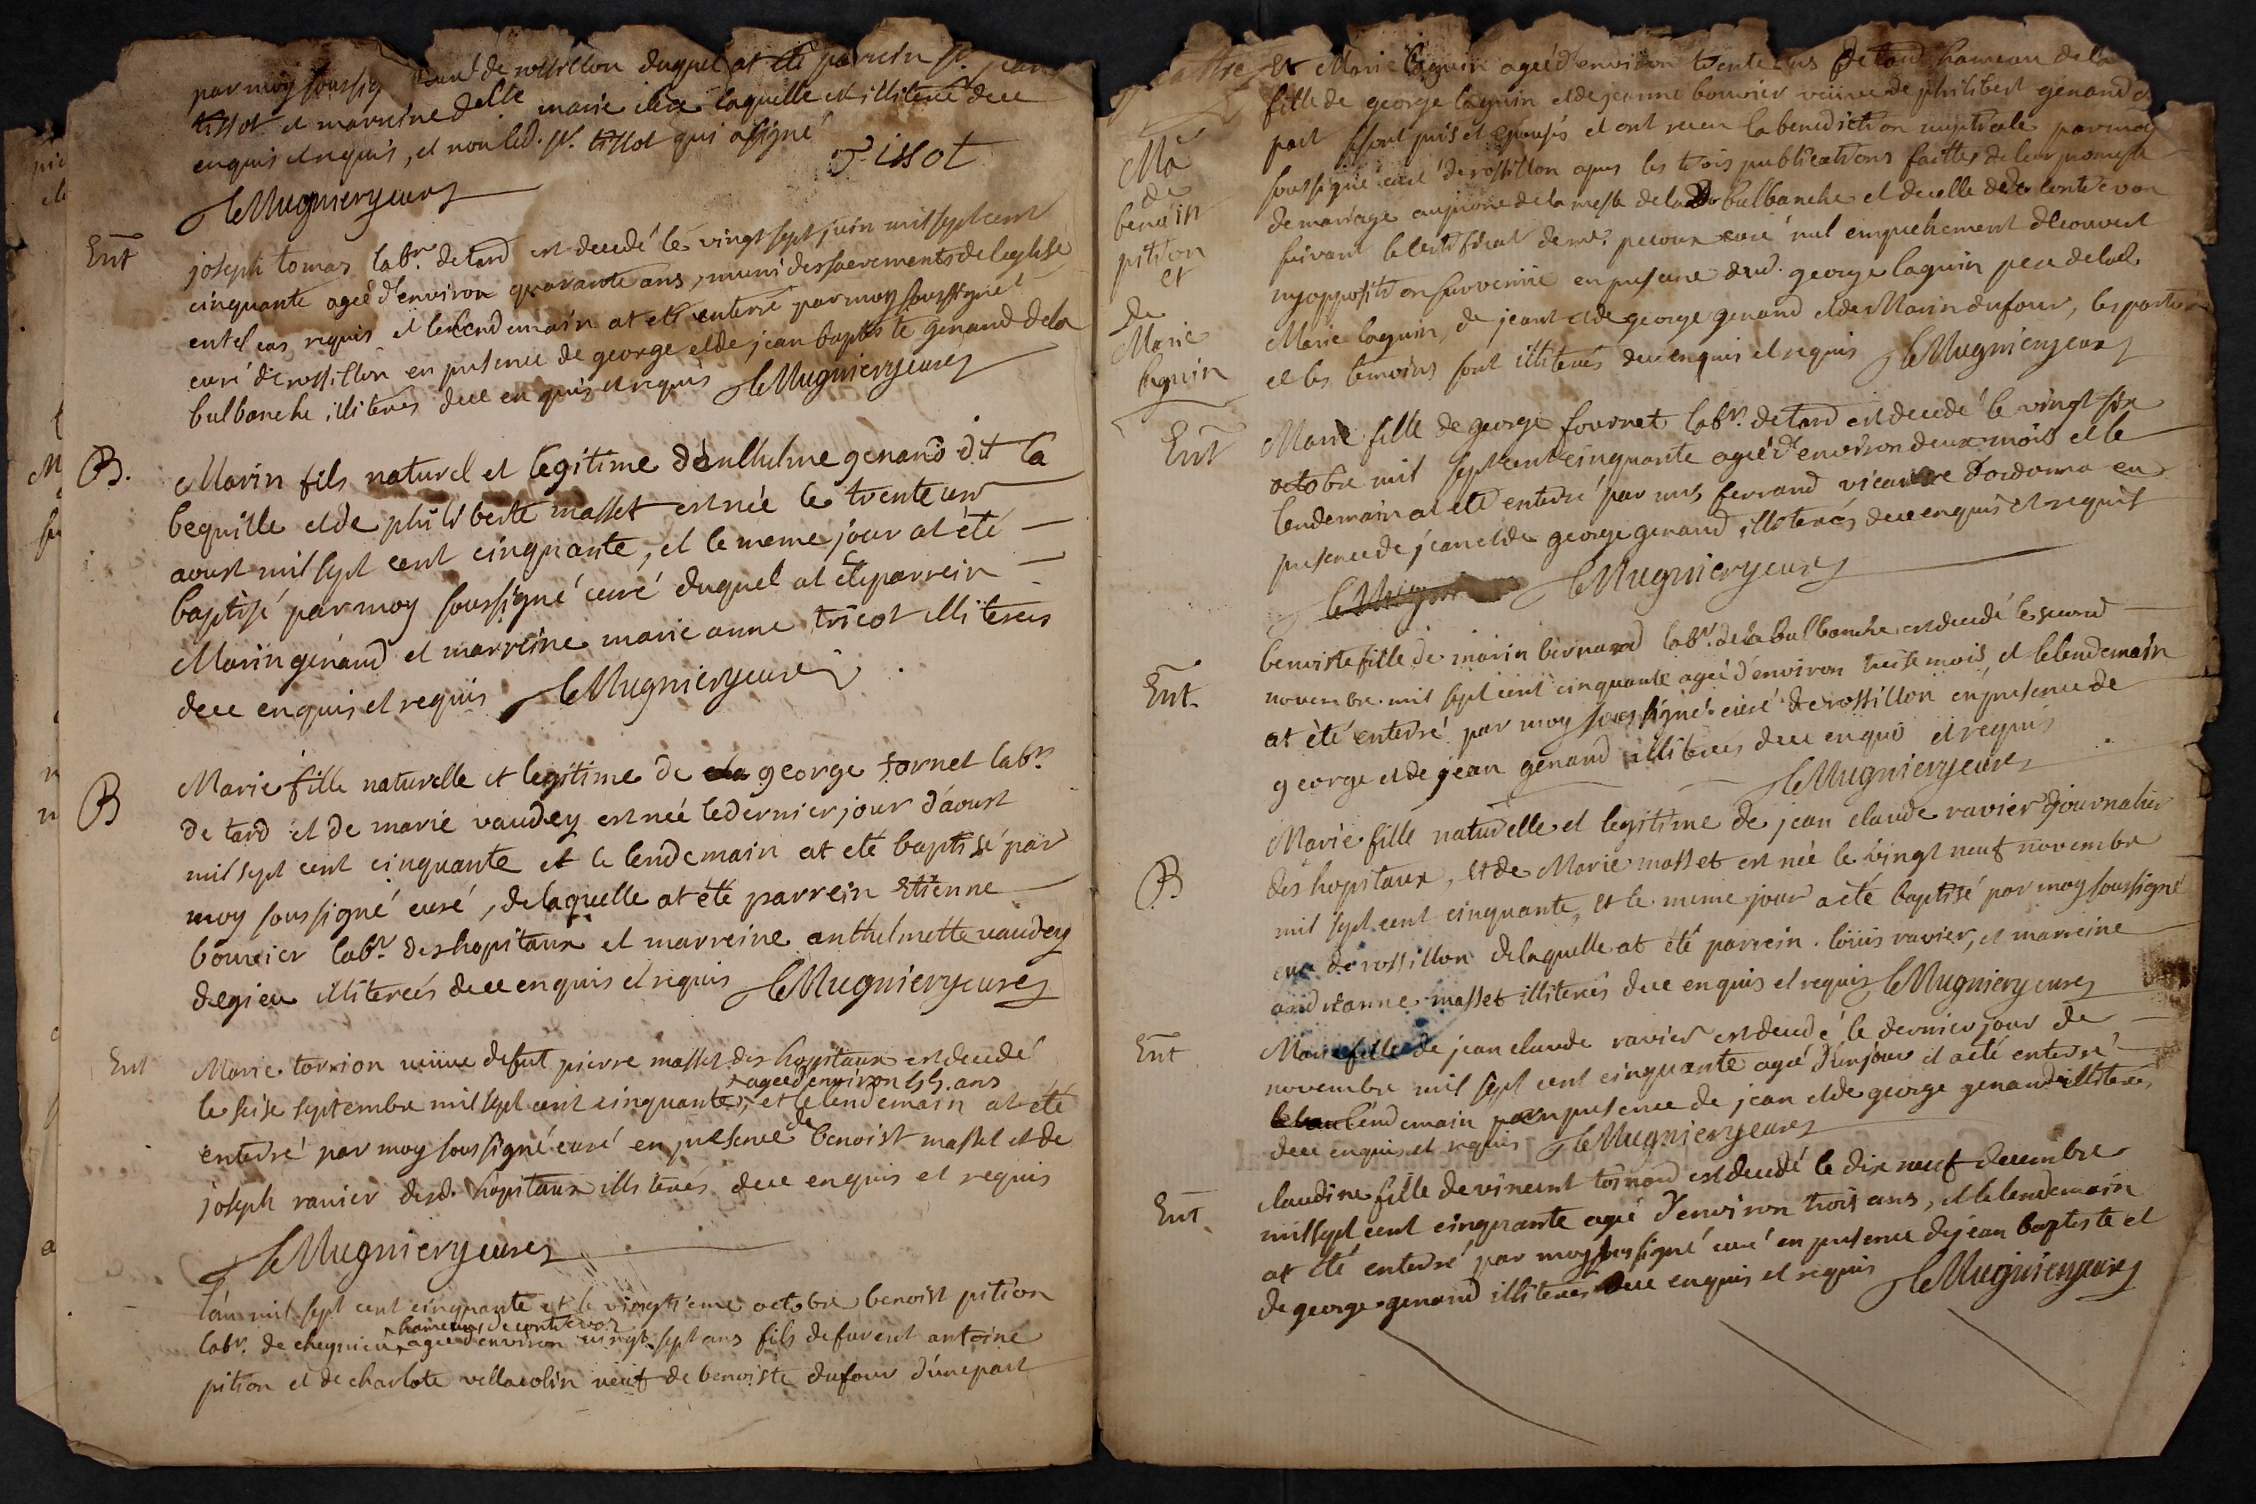 par moy soussig curé de rossillon duquel at eté parrein sr. jean
tissot et marreine delle marie laquelle est illiteré dece
enquis et requis, et non led. sr. tissot qui a signé
Tissot
leMugnierycuré
Ent
joseph tomas labr. de tard est decedé le vingt sept juin mil sept cent
cinquante ageé d'environ quarante ans, muni des sacrements de leglise
en tel cas requis et le lendemain at eté enterré par moy soussigné
curé de rossillon en presence de george et de jean baptiste genand de la
bulbanche illiterés dece enquis et requis leMugnierycuré
B.
Marin fils naturel et legitime d'enthelme genand dit la
bequille et de philiberte masset est née le trente un
aoust mil sept cent cinquante, et le meme jour at été
baptisé par moy soussigné curé duquel at eté parrein
Marin genand et marreine marie anne tricot illiterés
dece enquis et requis leMugnierycuré
B
Marie fille naturelle et legitime de george fornet labr.
de tard et de marie vaudey est née le dernier jour d'aoust
mil sept cent cinquante et le lendemain at eté baptisé par
moy soussigné curé, de laquelle at été parrein Etienne
bouvier labr. des hopitaux et marreine anthelmette vaudey
degieu illiterés dece enquis et requis leMugnierycuré
Ent
Marie torrion veuve de fut pierre masset des hopitaux est decedé
ageé d'environ 55. ans
le seise septembre mil sept cent cinquante, et le lendemain at eté
enterré par moy soussigné curé en presence de benoist masset et de
joseph ravier desd. hopitaux illiterés dece enquis et requis
leMugnierycuré
l'an mil sept cent cinquante et le vingtieme octobre benoist pition
hameau de contrevoz
labr. de cheignieu ageé d'environ vingt sept ans fils de furent antoine
pition et de charlote vellacolin veuf de benoiste dufour d'une part
Ma
de
benoin
pittion
et
de
Marie
laguin
et Marie laguin ageé d'environ trente ans de tard hameau de
fille de george laguin et de jeanne bouvier veuve de philibert genand d'
part se sont pris et epousés et ont receu la benediction nuptiale par moy
soussigné curé de rossillon apres les trois publications faittes de leur promesse
de mariage au prone de la messe de la bulbanche et de celle de contrevoz
suivant le certificat de mr. curé nul empechement decouvert
ny opposition survenüe en presence dud. george laguin pere de lad.
Marie laguin, de jean et de george genand et de Marin dufour, les parties
et les temoins sont illiterés dece enquis et requis leMugnierycuré
Ent
Marie fille de george fournet labr. de tard est decedé le vingt six
octobre mil sept cent cinquante ageé d'environ deux mois et le
lendemain at eté enterré par mrs ferrand vicaire d'ordonna en
presence de jean et de george genand illiterés dece enquis et requis
leMugnierycuré
Ent.
benoiste fille de marin bernard labr. de la bulbanche est decedé le second
novembre mil sept cent cinquante ageé d'environ treise mois, et le lendemain
at èté enterré par moy soussigné curé de rossillon en presence de
george et de jean genand illiterés dece enquis et requis
leMugnierycuré
B
Marie fille naturelle et legitime de jean claude ravier journalier
des hopitaux, et de Marie masset est née le vingt neuf novembre
mil sept cent cinquante, et le meme jour a eté baptisé par moy soussigné
curé de rossillon de laquelle at été parrein louis ravier, et marreine
andreanne masset illiterés dece enquis et requis leMugnierycuré
Ent
Marie fille de jean claude ravier est decedé le dernier jour de
novembre mil sept cent cinquante agé d'un jour et a eté enterré
lendemain en presence de jean et de george genand illiterés
dece enquis et requis leMugnierycuré
Ent
claudine fille de vincent toinard est decedé le dix neuf decembre
mil sept cent cinquante ageé d'environ trois ans, et le lendemain
at été enterré par moy soussigné curé en presence de jean baptiste et
de george genand illiterés dece enquis et requis leMugnierycuré